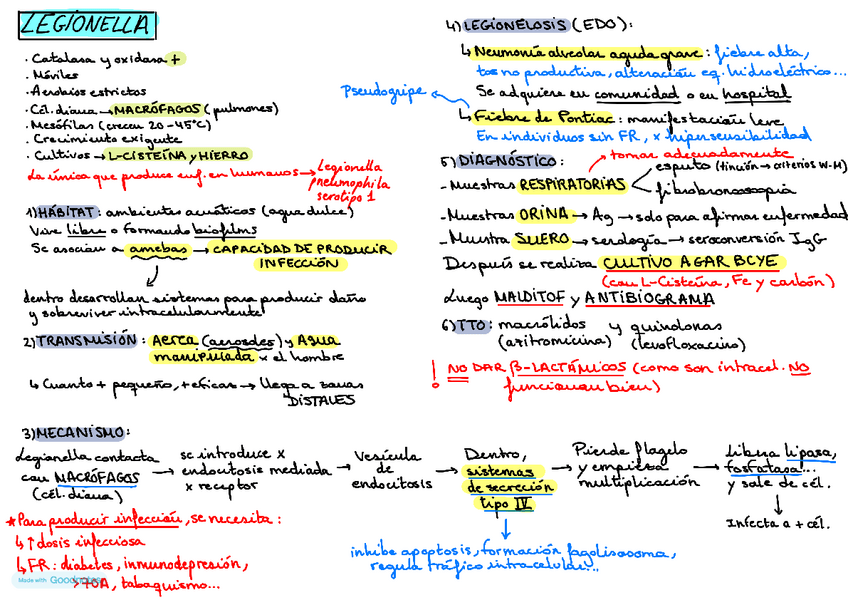 LEGIONELLA
· Catalasa y oxidasa +
· Móviles
· Aerobios estrictos
· Cél. diana → MACRÓFAGOS (pulmones)
· Mesófilas (crecen 20-45°C)
· Crecimiento exigente
· Cultivos → L-CISTEÍNA y HIERRO
La única que produce enf. en humanos → Legionella
pneumophila
serotipo 1
1) HÁBITAT: ambientes acuáticos (agua dulce)
Vive libre o formando biofilms
Se asocian a amebas → CAPACIDAD DE PRODUCIR
INFECCIÓN
dentro desarrollan sistemas para producir daño
y sobrevivir intracelularmente
2) TRANSMISIÓN: Aérea (aerosoles) y Agua
manipulada x el hombre
↳ Cuanto + pequeño, + eficas → llega a zonas
DISTALES
3) MECANISMO:
Legionella contacta
con MACRÓFAGOS
(cél. diana)
→ se introduce x
endocitosis mediada
x receptor
→ Vesícula
de
endocitosis
→ Dentro,
sistemas
de secreción
tipo IV
→ Pierde flagelo
y empieza
multiplicación
→ Libera lipasa,
fosfatasa...
y sale de cél.
↓
Infecta a + cél.
inhibe apoptosis, formación fagolisosoma,
regula tráfico intracelular...
* Para producir infección, se necesita:
↳ ↑ dosis infecciosa
↳ FR: diabetes, inmunodepresión,
tabaquismo...
Made with Goodnotes
4) LEGIONELOSIS (EDO):
↳ Neumonía alveolar aguda grave: fiebre alta,
tos no productiva, alteración eq. hidroeléctrico...
Se adquiere en comunidad o en hospital
Pseudogripe
↳ Fiebre de Pontiac: manifestación leve
En individuos sin FR, x hipersensibilidad
5) DIAGNÓSTICO:
tomar adecuadamente
- Muestras RESPIRATORIAS
esputo (tinción → criterios W-M)
fibrobroncoscopia
- Muestras ORINA → Ag → solo para afirmar enfermedad
- Muestra SUERO → serología → seroconversión IgG
Después se realiza CULTIVO AGAR BCYE
(con L-Cisteína, Fe y carbón)
Luego MALDITOF y ANTIBIOGRAMA
6) TTO: macrólidos y quinolonas
(azitromicina) (levofloxacino)
! NO DAR β-LACTÁMICOS (como son intracel. NO
funcionan bien)